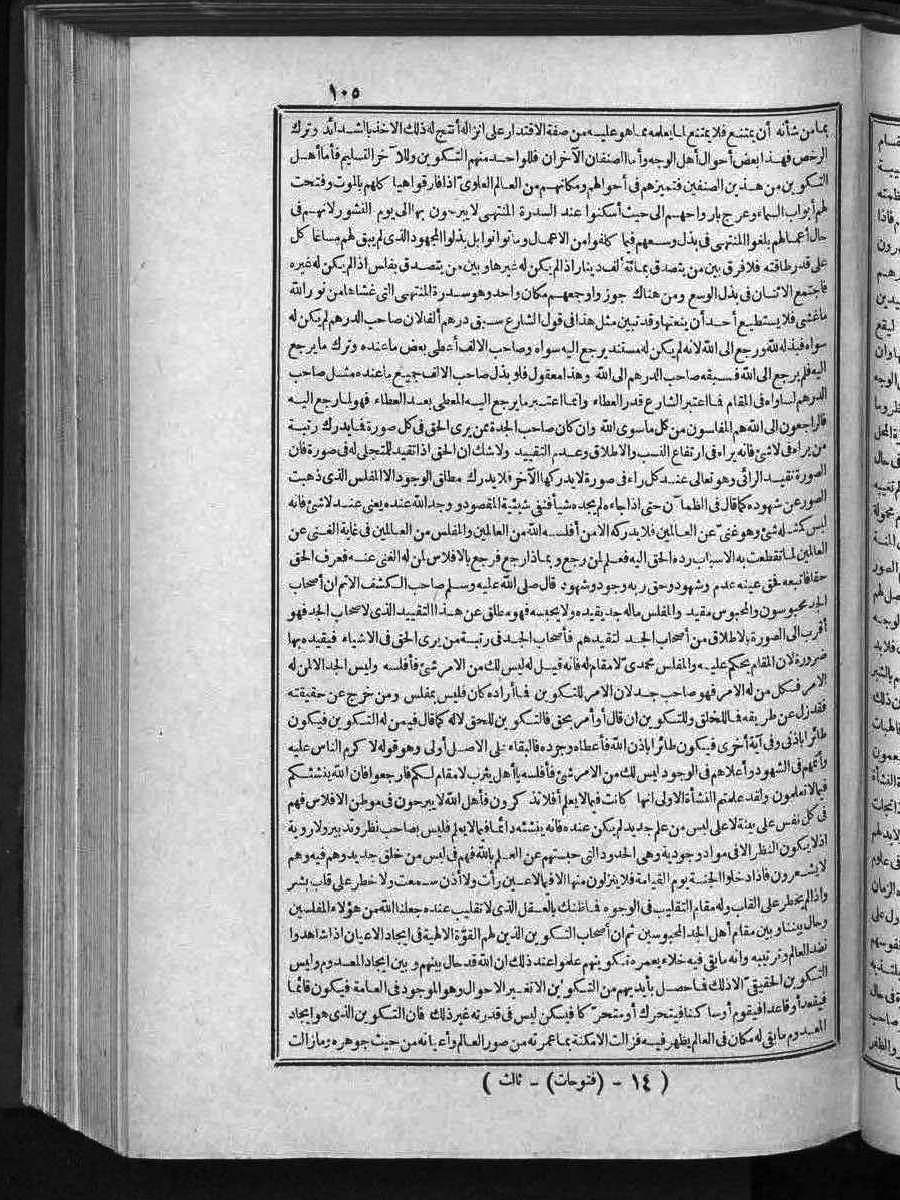 ١٠٥
بما من شأنه أن يمتنع فلا يمتنع لما يعلمه مما هو عليه من صفة الاقتدار على انزاله أنتج له ذلك الاخذ بالشدائد وترك
الرخص فهذا بعض أحوال أهل الوجه وأما الصنفان الآخران فللواحد منهم التكوين وللآخر التسليم فأما أهل
التكوين من هذين الصنفين فتميزهم فى أحوالهم ومكانهم من العالم العلوى اذا فارقوا هياكلهم بالموت وفتحت
لهم أبواب السماء وعرج بارواحهم الى حيث أسكنوا عند السدرة المنتهى لا يبرحون بها الى يوم النشور لانهم فى
حال أعمالهم بلغوا المنتهى فى بذل وسعهم فيما كلفوا من الاعمال وما توانوا بل بذلوا المجهود الذى لم يبق لهم مساغا كل
على قدر طاقته فلا فرق بين من يتصدق بمائة ألف دينار اذا لم يكن له غيرها وبين من يتصدق بفلس اذا لم يكن له غيره
فاجتمع الاثنان فى بذل الوسع ومن هناك جوزوا وجمعهم مكان واحد وهو سدرة المنتهى التى غشاها من نور الله
ما غشى فلا يستطيع أحد أن ينعتها وقد تبين مثل هذا فى قول الشارع سبق درهم ألفا لان صاحب الدرهم لم يكن له
سواه فبذله لله ورجع الى الله لانه لم يكن له مستند يرجع اليه سواه وصاحب الالف أعطى بعض ما عنده وترك ما يرجع
اليه فلم يرجع الى الله فسبقه صاحب الدرهم الى الله وهذا معقول فلو بذل صاحب الالف جميع ما عنده مثل صاحب
الدرهم لساواه فى المقام فما اعتبر الشارع قدر العطاء وانما اعتبر ما يرجع اليه المعطى بعد العطاء فهو لما رجع اليه
فالراجعون الى الله هم المفلسون من كل ما سوى الله وان كان صاحب الجدة ممن يرى الحق فى كل صورة فما يدرك رتبة
من يراه فى لا شئ فانه يراه فى ارتفاع النسب والاطلاق وعدم التقييد ولا شك ان الحق اذا تقيد للمتجلى له فى صورة فان
الصورة تقيد الرائى وهو تعالى عند كل راء فى صورة لا يدركها الآخر فلا يدرك مطلق الوجود الا المفلس الذى ذهبت
الصور عن شهوده كما قال فى الظمآن حتى اذا جاءه لم يجده شيأ فنفى شيئية المقصود ووجد الله عنده يعنى عند لا شئ فانه
ليس كمثله شئ وهو غنى عن العالمين فلا يدركه الا من أفلسه الله من العالمين والمفلس من العالمين فى غاية الغنى عن
العالمين لما تقطعت به الاسباب رده الحق اليه فعلم لمن رجع وبماذا رجع فرجع بالافلاس لمن له الغنى عنه فعرف الحق
حقا فاتبعه فحق عينه عدم وشهود وحق ربه وجود وشهود قال صلى الله عليه وسلم صاحب الكشف الاتم ان أصحاب
الجد محبوسون والمحبوس مقيد والمفلس ماله جد يقيده ولا يحبسه فهو مطلق عن هذا التقييد الذى لاصحاب الجد فهو
أقرب الى الصورة بالاطلاق من أصحاب الجد لتقيدهم فأصحاب الجد فى رتبة من يرى الحق فى الاشياء فيقيده بها
ضرورة لان المقام يحكم عليه والمفلس محمدى لا مقام له فانه قيل له ليس لك من الامر شئ فأفلسه وليس الجد الا لمن له
الامر فكل من له الامر فهو صاحب جد لان الامر للتكوين فما أراده كان فليس بمفلس ومن خرج عن حقيقته
فقد زل عن طريقه فما للخلق وللتكوين ان قال أو أمر بحق فالتكوين للحق لا له كما قال فيمن له التكوين فيكون
طائرا باذنى وفى آية أخرى فيكون طائرا باذن الله فأعطاه وجرده فالبقاء على الاصل أولى وهو قوله لا كرم الناس عليه
وأتمهم فى الشهود وأعلاهم فى الوجود ليس لك من الامر شئ فأفلسه يا أهل يثرب لا مقام لكم فارجعوا فان الله ينشئكم
فيما لا تعلمون ولقد علمتم النشأة الاولى انها كانت فيما لا يعلم أفلا تذكرون فأهل الله لا يبرحون فى موطن الافلاس فهم
فى كل نفس على بينة لا على لبس من علم جديد لم يكن عنده فانه ينشئه دائما فيما لا يعلم فليس بصاحب نظر وتدبير ولا روية
اذ لا يكون النظر الا فى مواد وجودية وهى الحدود التى حبستهم عن العلم بالله فهم فى لبس من خلق جديد وهم فيه وهم
لا يشعرون فاذا دخلوا الجنة يوم القيامة فلا ينزلون منها الا فيما لا عين رأت ولا أذن سمعت ولا خطر على قلب بشر
واذا لم يخطر على القلب وله مقام التقليب فى الوجوه فما ظنك بالعقل الذى لا تقليب عنده جعلنا الله من هؤلاء المفلسين
وحال بيننا وبين مقام أهل الجد المحبوسين ثم ان أصحاب التكوين الذين لهم القوة الالهية فى ايجاد الاعيان اذا شاهدوا
نضد العالم وترتيبه وانه ما بقى فيه خلاء يعمره تكوينهم علموا عند ذلك ان الله قد حال بينهم وبين ايجاد المعدوم وليس
التكوين الحقيقى الا ذلك فما حصل بأيديهم من التكوين الا تغيير الاحوال وهو الموجود فى العامة فيكون قائما
فيقعد أو قاعدا فيقوم أو ساكنا فيتحرك أو متحركا فيسكن ليس فى قدرته غير ذلك فان التكوين الذى هو ايجاد
المعدوم ما بقى له مكان فى العالم يظهر فيه فزالت الامكنة بما عمرته من صور العالم وأعيانه من حيث جوهره وما زالت
( ١٤ - (فتوحات) - ثالث )